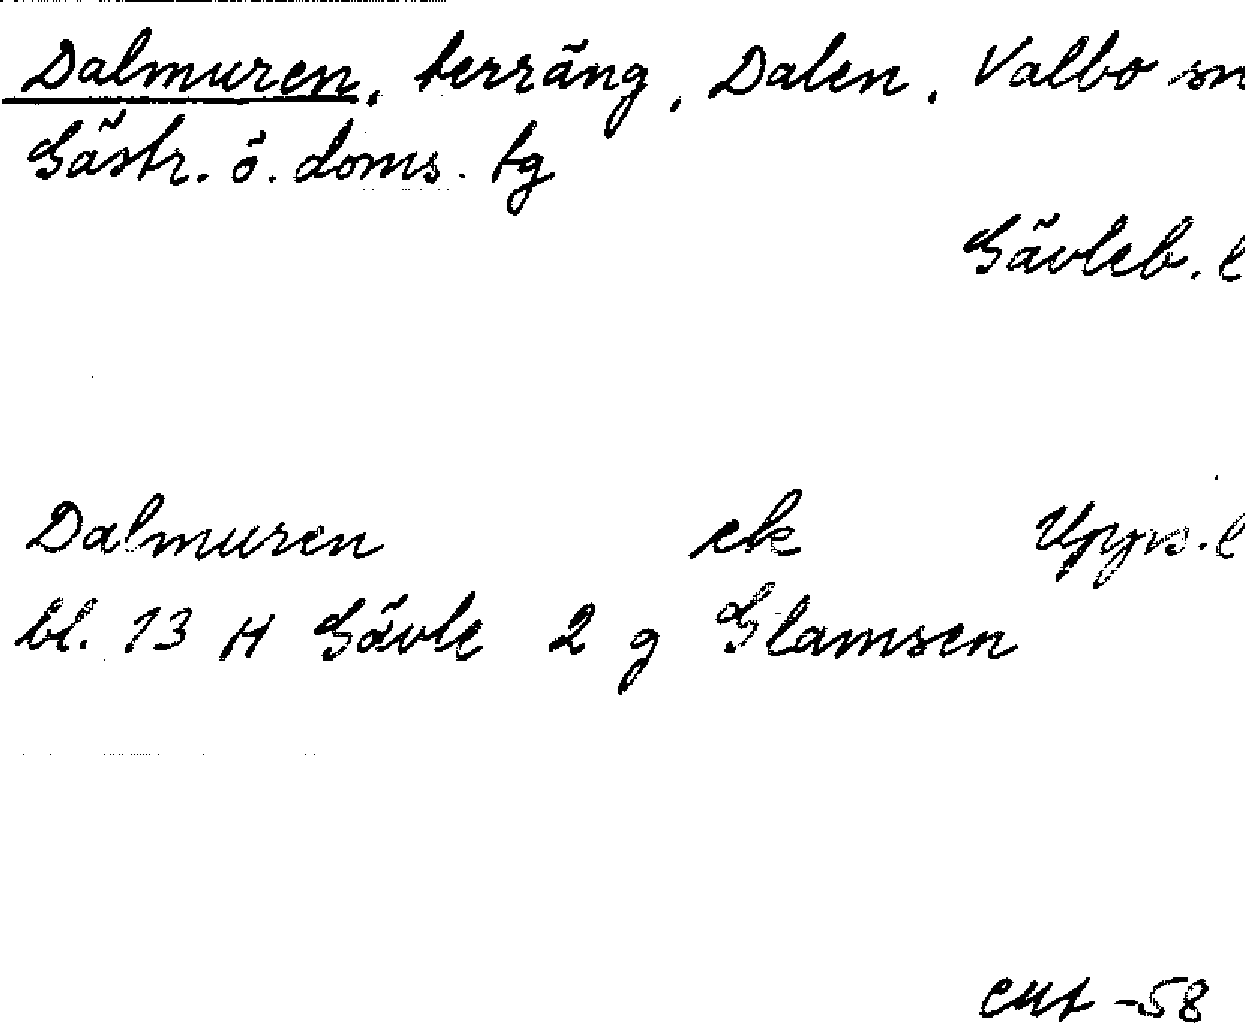 Dalmuren, terräng, Dalen, Valbo sn
Gästr. ö. doms. tg
Gävleb. l
Dalmuren ek Upps. l
bl. 13 H Gävle 2 g Glamsen
-58